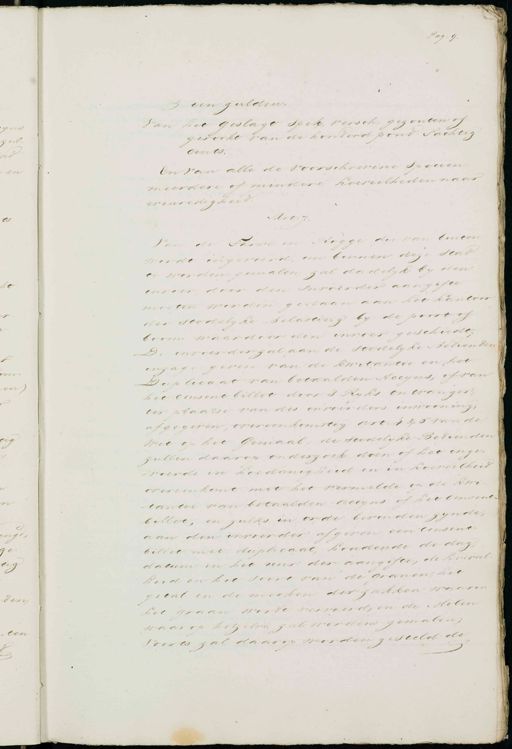 Pag. 9.
een gulden.
Van het geslagt spek versch, gezouten of
gerookt van de honderd pond tachtig
cents.
En van alle de voorschrevene speciën
meerdere of mindere hoeveelheden naar
evenredigheid
Art. 7.
Van de Tarwe en Rogge die van buiten
wordt ingevoerd, om binnen deze stad
te worden gemalen, zal dadelijk bij den
invoer door den Invoerder aangifte
moeten worden gedaan aan het kantoor
der stedelijke belasting bij de poort of
boom waardoor den invoer geschiedt,
De invoerder zal aan de stedelijke
geven van de kwitantie en het
Duplicaat van betaalden Accijns, of van
het consent billet door 's Rijks ontvanger,
ter plaatse van des invoerders inwoning,
afgegeven, overeenkomstig art. van de
Wet op het Gemaal. de stedelijke Bedienden
zullen daarop onderzoek doen of het inge-
voerde in hoedanigheid en in hoeveelheid
overeenkomt met het vermelde in de kwi-
tantie van betaalden accijns of het consent
billet, en zulks in orde bevonden zynde,
aan den invoerder afgeven een consent
billet met duplicaat, houdende de dag
datum en het uur der aangifte, de hoeveel
heid en het soort van de granen, het
getal en de merken der zakken waarin
het graan wordt vervoerd, en de Molen
waarop hetzelve zal worden gemalen,
Voorts zal daarop worden gesteld de